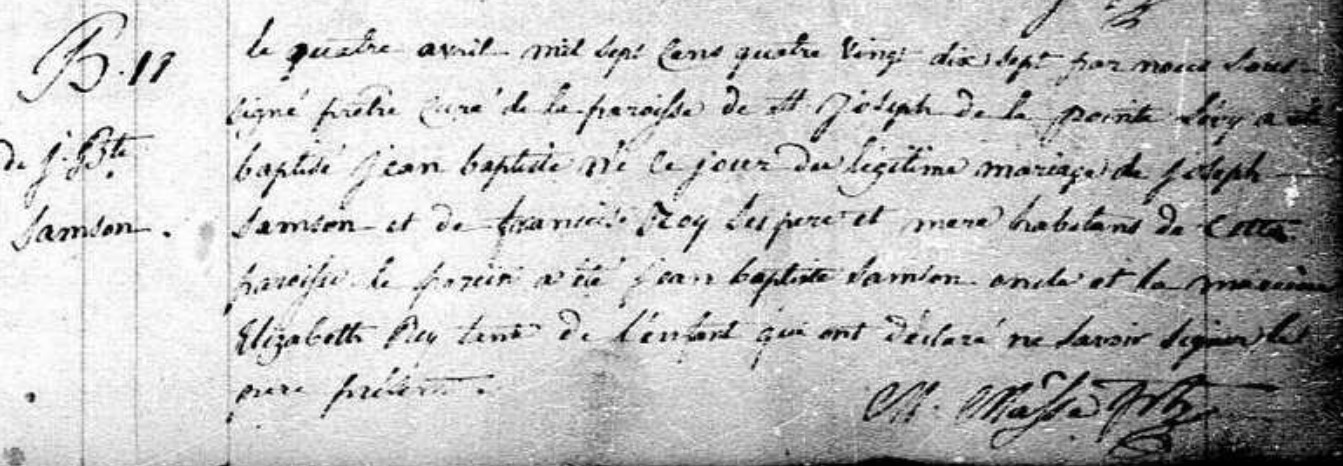 B. 11
de J. Bte
Samson.
le quatre avril mil sept cens quatre vingt dix sept par nous sous-
signé prêtre curé de la paroisse de St Joseph de la pointe Lévy a été
baptisé jean baptiste né ce jour du légitime mariage de Joseph
Samson et de françoise Roy ses pere et mere habitans de cette
paroisse le parein a été jean baptiste Samson oncle et la mareine
Elizabeth Roy tante de l'enfant qui ont déclaré ne savoir signer le
pere présent.
M. Masse Ptr